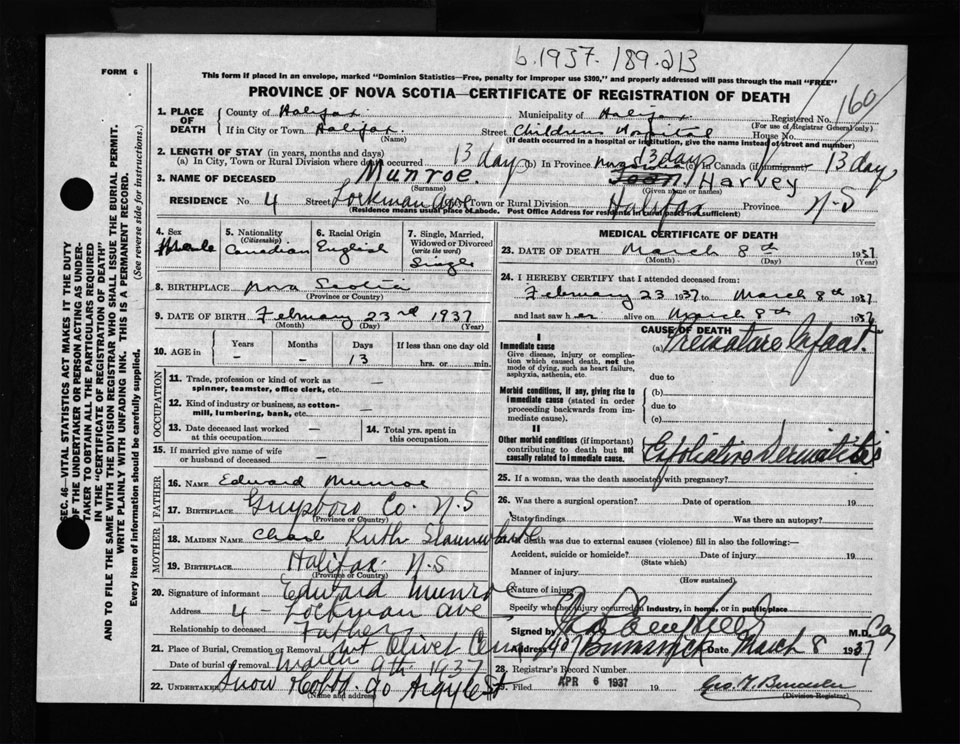 b.1937.189.213
FORM 6
This form if placed in an envelope, marked "Dominion Statistics—Free, penalty for improper use $300," and properly addressed will pass through the mail "FREE"
PROVINCE OF NOVA SCOTIA—CERTIFICATE OF REGISTRATION OF DEATH
160
1. PLACE OF DEATH
County of Halifax
Municipality of Halifax
Registered No.
(For use of Registrar General only)
If in City or Town Halifax
(Name)
Street Childrens Hospital House No.
(If death occurred in a hospital or institution, give the name instead of street and number)
2. LENGTH OF STAY (in years, months and days)
(a) In City, Town or Rural Division where death occurred 13 days (b) In Province 13 days (c) In Canada (if immigrant) 13 days
3. NAME OF DECEASED Munroe. Harvey
(Surname) (Given name or names)
RESIDENCE No. 4 Street Lockman Ave Town or Rural Division Halifax Province N-S
(Residence means usual place of abode. Post Office Address for residents in rural parts not sufficient)
4. Sex Male
5. Nationality (Citizenship) Canadian
6. Racial Origin English
7. Single, Married, Widowed or Divorced (write the word) Single
8. BIRTHPLACE Nova Scotia
(Province or Country)
9. DATE OF BIRTH February 23rd 1937
(Month) (Day) (Year)
10. AGE in Years Months Days If less than one day old
- - 13 hrs. or min.
OCCUPATION
11. Trade, profession or kind of work as spinner, teamster, office clerk, etc. —
12. Kind of industry or business, as cotton-mill, lumbering, bank, etc. —
13. Date deceased last worked at this occupation —
14. Total yrs. spent in this occupation.
15. If married give name of wife or husband of deceased —
FATHER
16. NAME Edward Munroe
17. BIRTHPLACE Guysboro Co. N.S
(Province or Country)
MOTHER
18. MAIDEN NAME Ruth
19. BIRTHPLACE Halifax N.S
(Province or Country)
20. Signature of informant Edward Munroe
Address 4 - Lockman Ave
Relationship to deceased Father
21. Place of Burial, Cremation or Removal Mt Olivet Cem
Date of burial or removal March 9th 1937
22. UNDERTAKER Snow 90 Argyle St
(Name and address)
MEDICAL CERTIFICATE OF DEATH
23. DATE OF DEATH March 8th 1937
(Month) (Day) (Year)
24. I HEREBY CERTIFY that I attended deceased from:
February 23 1937 to March 8th 1937
and last saw h alive on March 8th 1937
CAUSE OF DEATH
I
Immediate cause
Give disease, injury or complication which caused death, not the mode of dying, such as heart failure, asphyxia, asthenia, etc.
(a) Premature Infant
due to
Morbid conditions, if any, giving rise to immediate cause (stated in order proceeding backwards from immediate cause).
(b)
due to
(c)
II
Other morbid conditions (if important) contributing to death but not causally related to immediate cause.
Exfoliating Dermatitis
25. If a woman, was the death associated with pregnancy?
26. Was there a surgical operation? Date of operation 19
State findings Was there an autopsy?
death was due to external causes (violence) fill in also the following:—
Accident, suicide or homicide? Date of injury 19
(State which)
Manner of injury
(How sustained)
Nature of injury
Specify whether injury occurred in industry, in home, or in public place
Signed by M.D.
Address Date March 8 1937
28. Registrar's Record Number
Filed APR 6 1937 19
Geo.
(Division Registrar)
SEC. 46—VITAL STATISTICS ACT MAKES IT THE DUTY
OF THE UNDERTAKER OR PERSON ACTING AS UNDERTAKER TO OBTAIN ALL THE PARTICULARS REQUIRED
IN THE "CERTIFICATE OF REGISTRATION OF DEATH"
AND TO FILE THE SAME WITH THE DIVISION REGISTRAR WHO SHALL ISSUE THE BURIAL PERMIT.
WRITE PLAINLY WITH UNFADING INK. THIS IS A PERMANENT RECORD.
Every item of information should be carefully supplied. (See reverse side for instructions.)